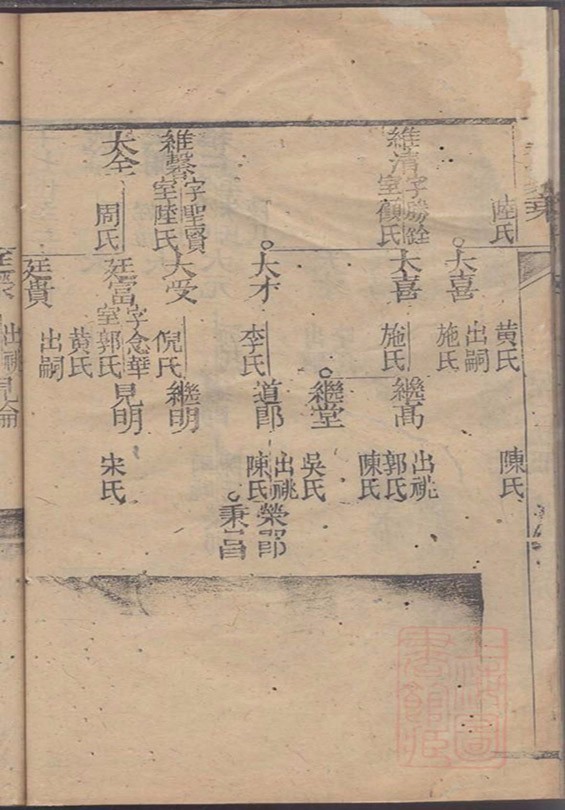 陸氏
黃氏
陳氏
大喜
出嗣
施氏
維清
字勝銓
室顧氏
大喜
施氏
繼高
出祧
郭氏
陳氏
繼堂
吳氏
大才
李氏
道郎
出祧
陳氏
榮郎
秉昌
維馨
字聖賢
室陸氏
大受
倪氏
繼明
大全
周氏
廷富
字念華
室郭氏
黃氏
見明
宋氏
廷貴
出嗣
出祧見倫
上海圖書館藏